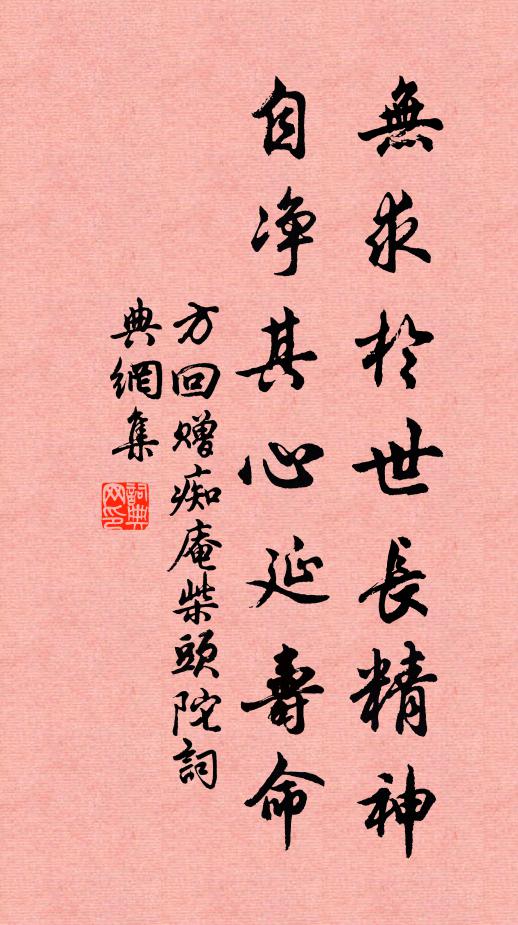 無求於世長精神
自净其心延壽命
方回赠痴庵柴頭陀詞
典網集
詞典
网印